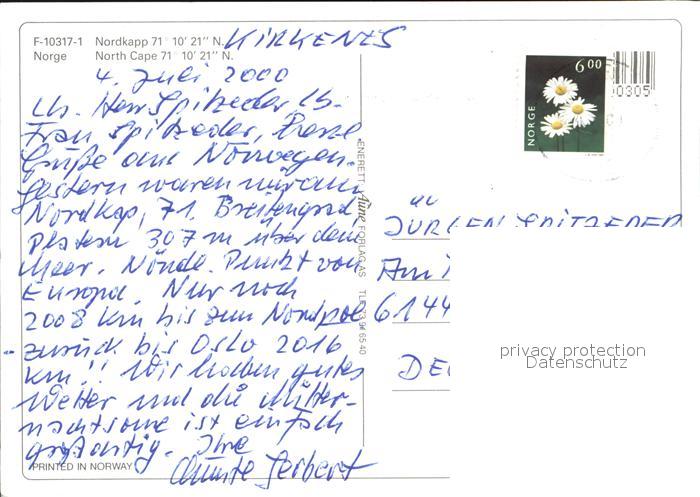 F-10317-1 Nordkapp 71° 10' 21'' N.
Norge North Cape 71° 10' 21'' N.
KIRKENES
4. Juli 2000
Lb. Herr Spitzeder Lb.
Frau Spitzeder,
Grüße aus Norwegen.
Gestern waren wir am
Nordkap, 71. Breitengrad
307 m über dem
Meer. Nördl. Punkt von
Europa. Nur noch
2008 km bis zum Nordpol
zurück bis Oslo 2016
km!! Wir haben gutes
Wetter und die Mitter-
nachtsonne ist einfach
großartig. Ihre
Gerbert
PRINTED IN NORWAY
ENERETT: Aune FORLAG AS TLF. 73 91 65 40
NORGE
6 00
0305
JÜRGEN SPITZEDER
Am
6144
DE
privacy protection
Datenschutz